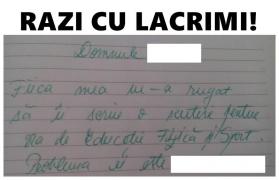 RAZI CU LACRIMI!
Domnule
Fiica mea m-a rugat
să îi scriu o scutire pentru
ora de Educație Fizică și Sport.
Problema ei este